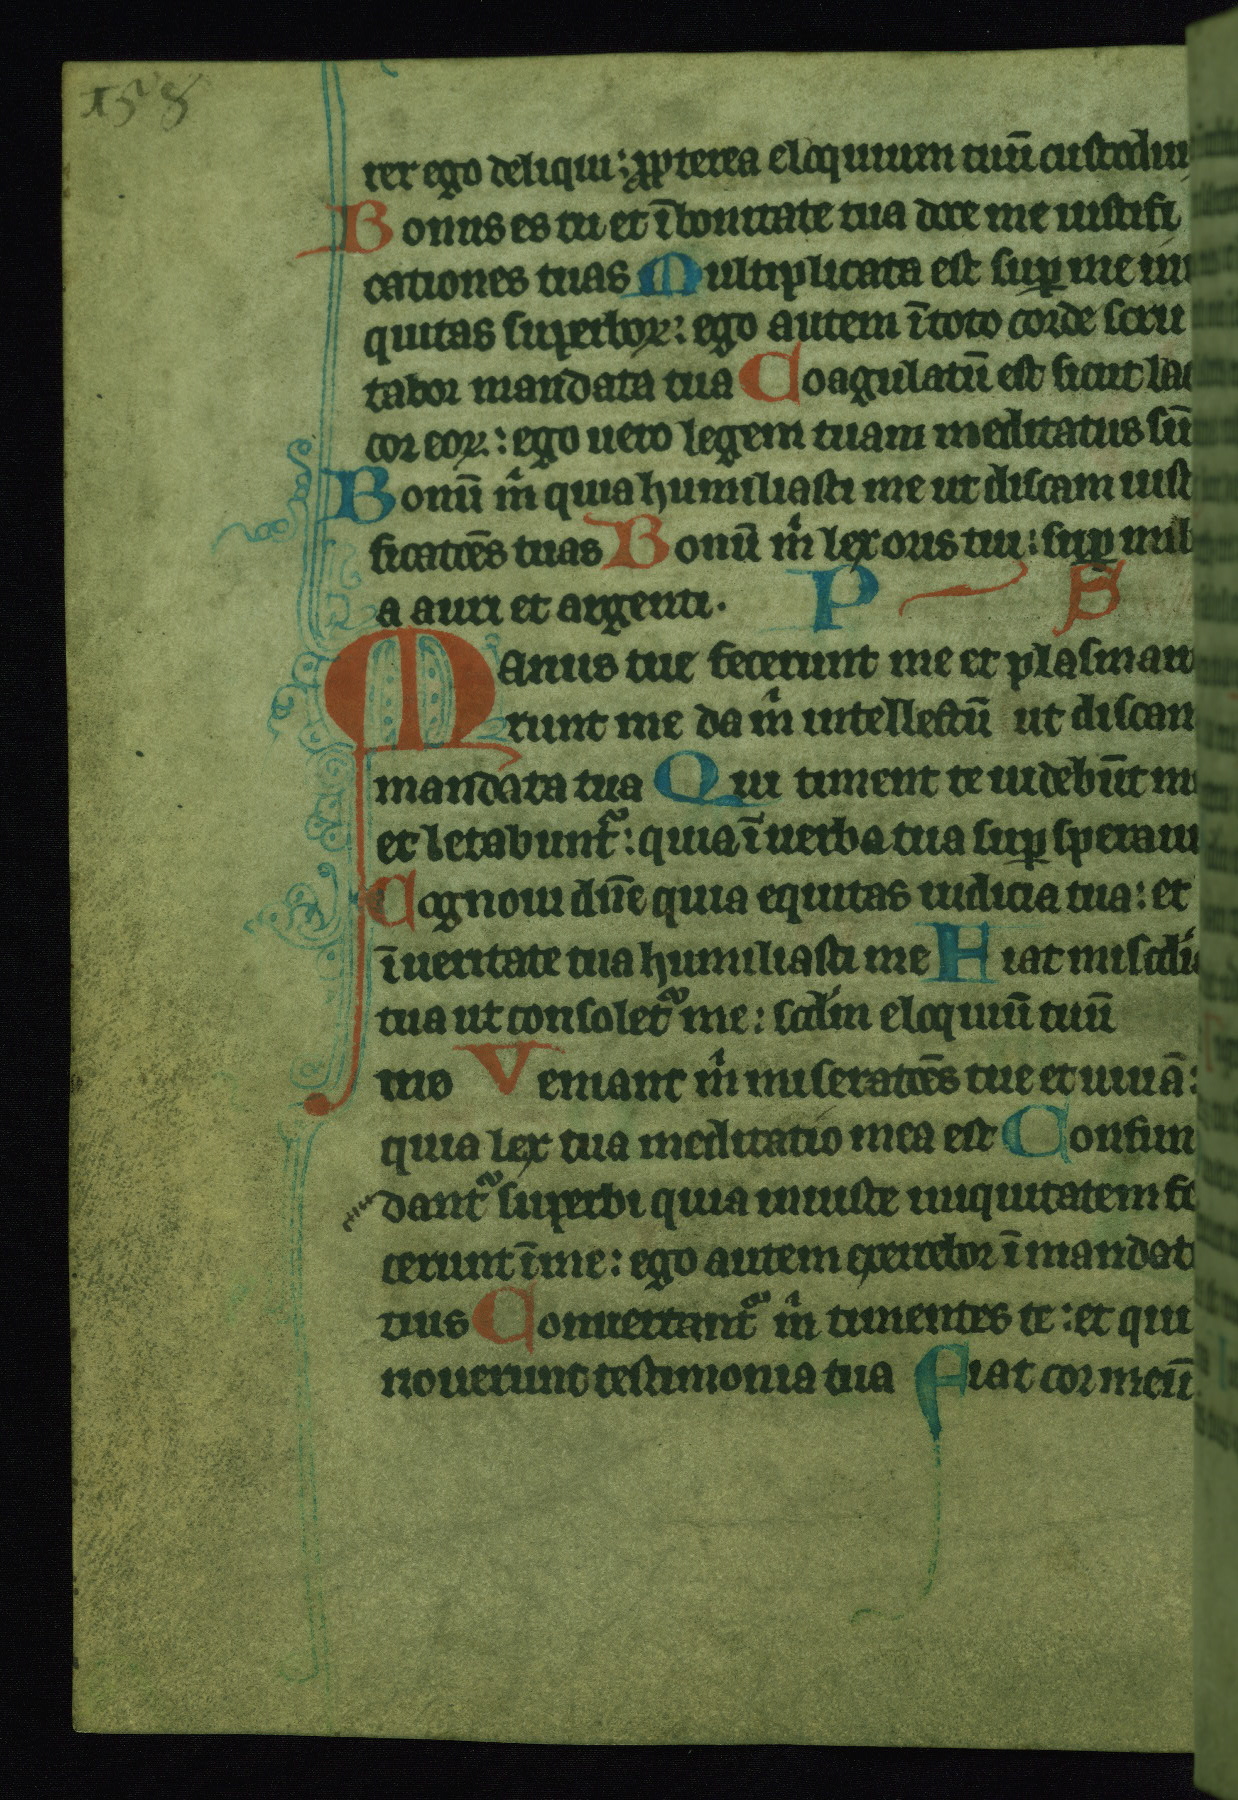 158
rer ego deliqui: ꝓpterea eloquium tuū custodiu
Bonus es tu et ī bonitate tua doce me iustifi
cationes tuas Multiplicata est suꝑ me ini
quitas superboꝝ: ego autem ī toto corde scru
tabor mandata tua Coagulatū est sicut lac
cor eoꝝ: ego uero legem tuam meditatus sū
Bonū m̄ quia humiliasti me ut discam iusti
ficatiōēs tuas Bonū m̄ lex oris tui: suꝑ mil
a auri et argenti. P S
Manus tue fecerunt me et plasmaue
runt me da m̄ intellectū ut discam
mandata tua Qui timent te uidebūt me
et letabunt᷑: quia ī uerba tua suꝑ speraui
Cognoui dn̄e quia equitas iudicia tua: et
ī ueritate tua humiliasti me Hiat mis̄cdia
tua ut consolet᷑ me: scdm̄ eloquiū tuū
uo Veniant m̄ miseratōēs tue et uiuā:
quia lex tua meditatio mea est Confun
dant᷑ superbi quia iniuste iniquitatem fe
cerunt ī me: ego autem exercebor ī mandatis
tuis Conuertant᷑ m̄ timentes te: et qui
nouerunt testimonia tua Fiat cor meū